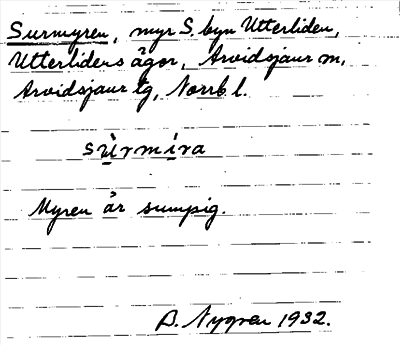 Surmyren, myr S byn Utterliden,
Utterlidens ägor, Arvidsjaur m,
Arvidsjaur tg, Norrb l.
sùrmíra
Myren är sumpig.
B. Nygren 1932.